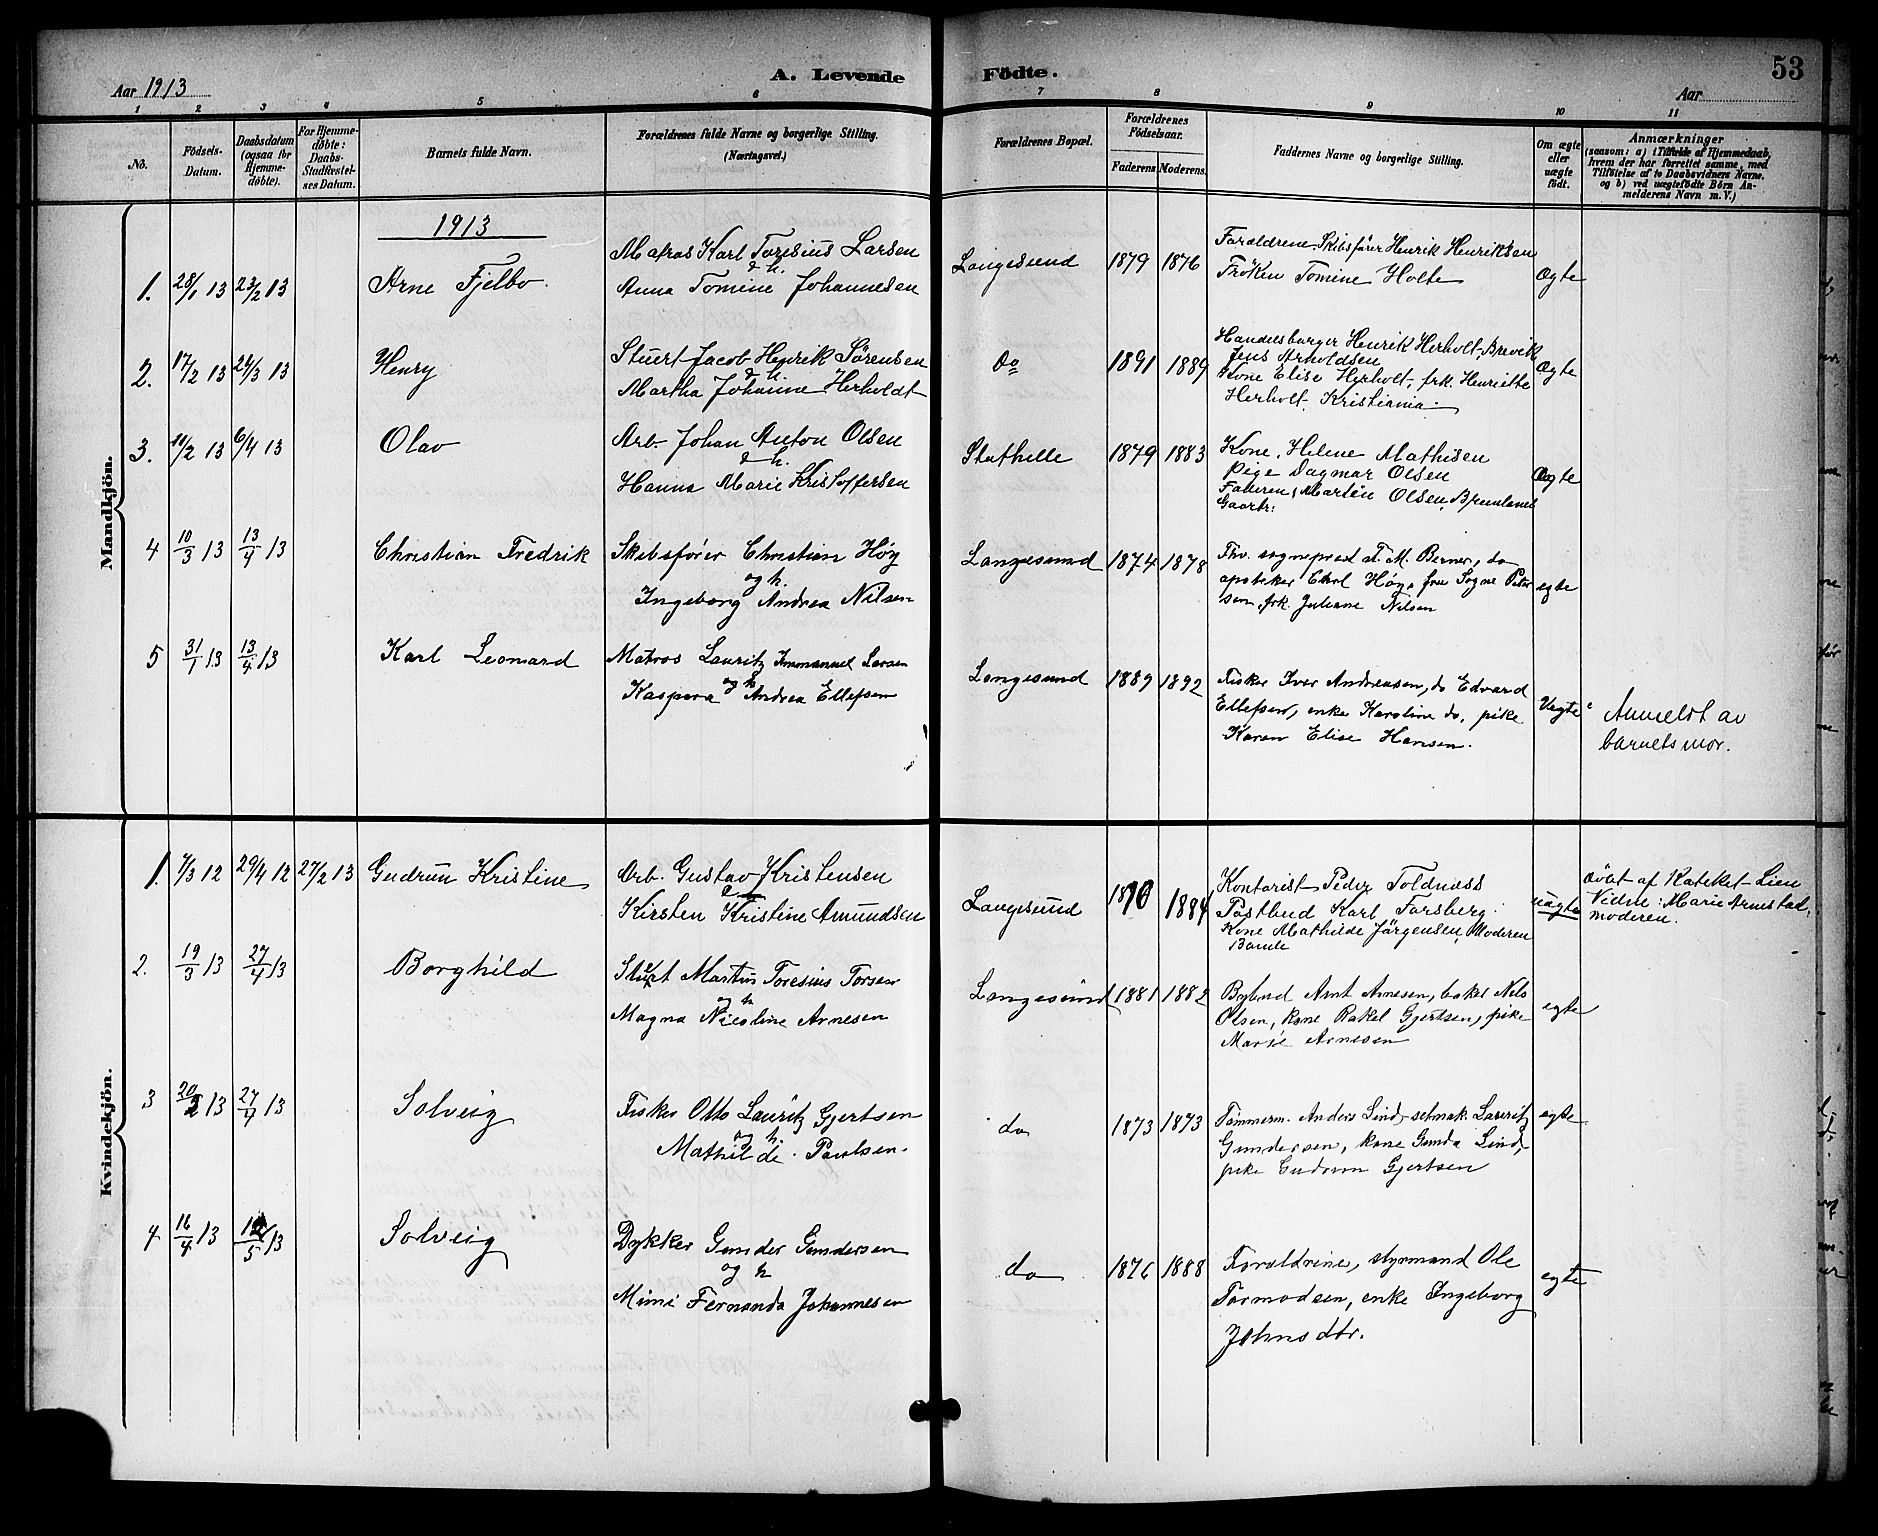 Aar 1913
A. Levende Födte.
53
Aar
1 2 3 4 5 6 7 8 9 10 11
No.
Födsels-Datum.
Daabsdatum (ogsaa for Hjemme-döbte).
For Hjemme-döbte: Daabs-Stadfæstelses Datum.
Barnets fulde Navn.
Forældrenes fulde Navne og borgerlige Stilling.
(Næringsvei.)
Forældrenes Bopæl.
Forældrenes Födselsaar.
Faderens Moderens
Faddernes Navne og borgerlige Stilling.
Om ægte eller uægte födt.
Anmærkninger
(saasom: a) i Tilfælde af Hjemmedaab,
hvem der har forrettet samme, med
Tilföielse af to Daabsvidners Navne,
og b) ved uægtefödte Börn An-
melderens Navn m. V.)
Mandkjön.
1913
1. 28/1 13 23/2 13 Arne Fjelbo.
Matros Karl Toresius Larsen
& h.
Anna Tomine Johannesen
Langesund 1879 1876
Foraldrene, Skibsfører Henrik Henriksen
Fröken Tomine Holte
Ægte
2. 17/2 13 24/3 13 Henry
Stuert Jacob Henrik Sørensen
& h.
Martha Johanne Herholdt
do 1891 1889
Handelsborger Henrik Herholt, Brevik
Jens Arholdsen
Kone Elise Herholt, frk. Henriette
Herholt, Kristiania.
Ægte
3. 11/2 13 6/4 13 Olav
Arb. Johan Anton Olsen
& h.
Hanna Marie Kristoffersen
Stathelle 1879 1883
Kone, Helene Mathisen
Pige Dagmar Olsen
Faderen, Martin Olsen,
Gaarbr:
Ægte
4 10/3 13 13/4 13 Christian Fredrik
Skibsfører Christian Høy
og h.
Ingeborg Andrea Nilsen
Langesund 1874 1878
Fhv. sogneprest T. M. Berner, do
apoteker Høy, fru Signe Peter
sen, frk. Juliane Nilsen
egte
5 31/1 13 13/4 13 Karl Leonard
Matros Lauritz Immanuel Larsen
og h
Kaspara Andrea Ellefsen
Langesund 1889 1892
Fisker Iver Andreasen, do Edvard
Ellefsen, enke Karoline do, pike
Karen Elise Hansen.
Uegte
Anmeldt av
barnets mor.
Kvindekjön.
1. 7/3 12 29/4 12 27/2 13 Gudrun Kristine
Arb. Gustav Kristensen
Kirsten Kristine Amundsen
Langesund 1890 1884
Kontorist Peder Toldnæss
Postbud Karl Forsberg.
Kone Mathilde Jörgensen, Moderen
Bamle
uægte
döbt af Kateket Lien
Vidne: Marie Arnestad,
moderen.
2. 19/3 13 27/4 13 Borghild
Stuert Martin Toresius Torsen
og h
Magna Nicoline Arnesen
Langesund 1881 1882
Bybud Arnt Arnesen, baker Nils
Olsen, kone Rakel Gjertsen, pike
Marie Arnesen
egte
3 20/2 13 27/4 13 Solveig
Fisker Otto Lauritz Gjertsen
og h.
Mathilde Paulsen.
do 1873 1873
Tømmerm. Anders Lind, Lauritz
Gundersen, kone Gunda Lind,
pike Gudrun Gjertsen
egte
4 16/4 13 12/5 13 Solveig
Dykker Gunder Gundersen
og h
Mimi Fernanda Johannesen
do 1876 1888
Foraldrene, styrmand Ole
Tormodsen, enke Ingeborg
Johnsdtr.
egte